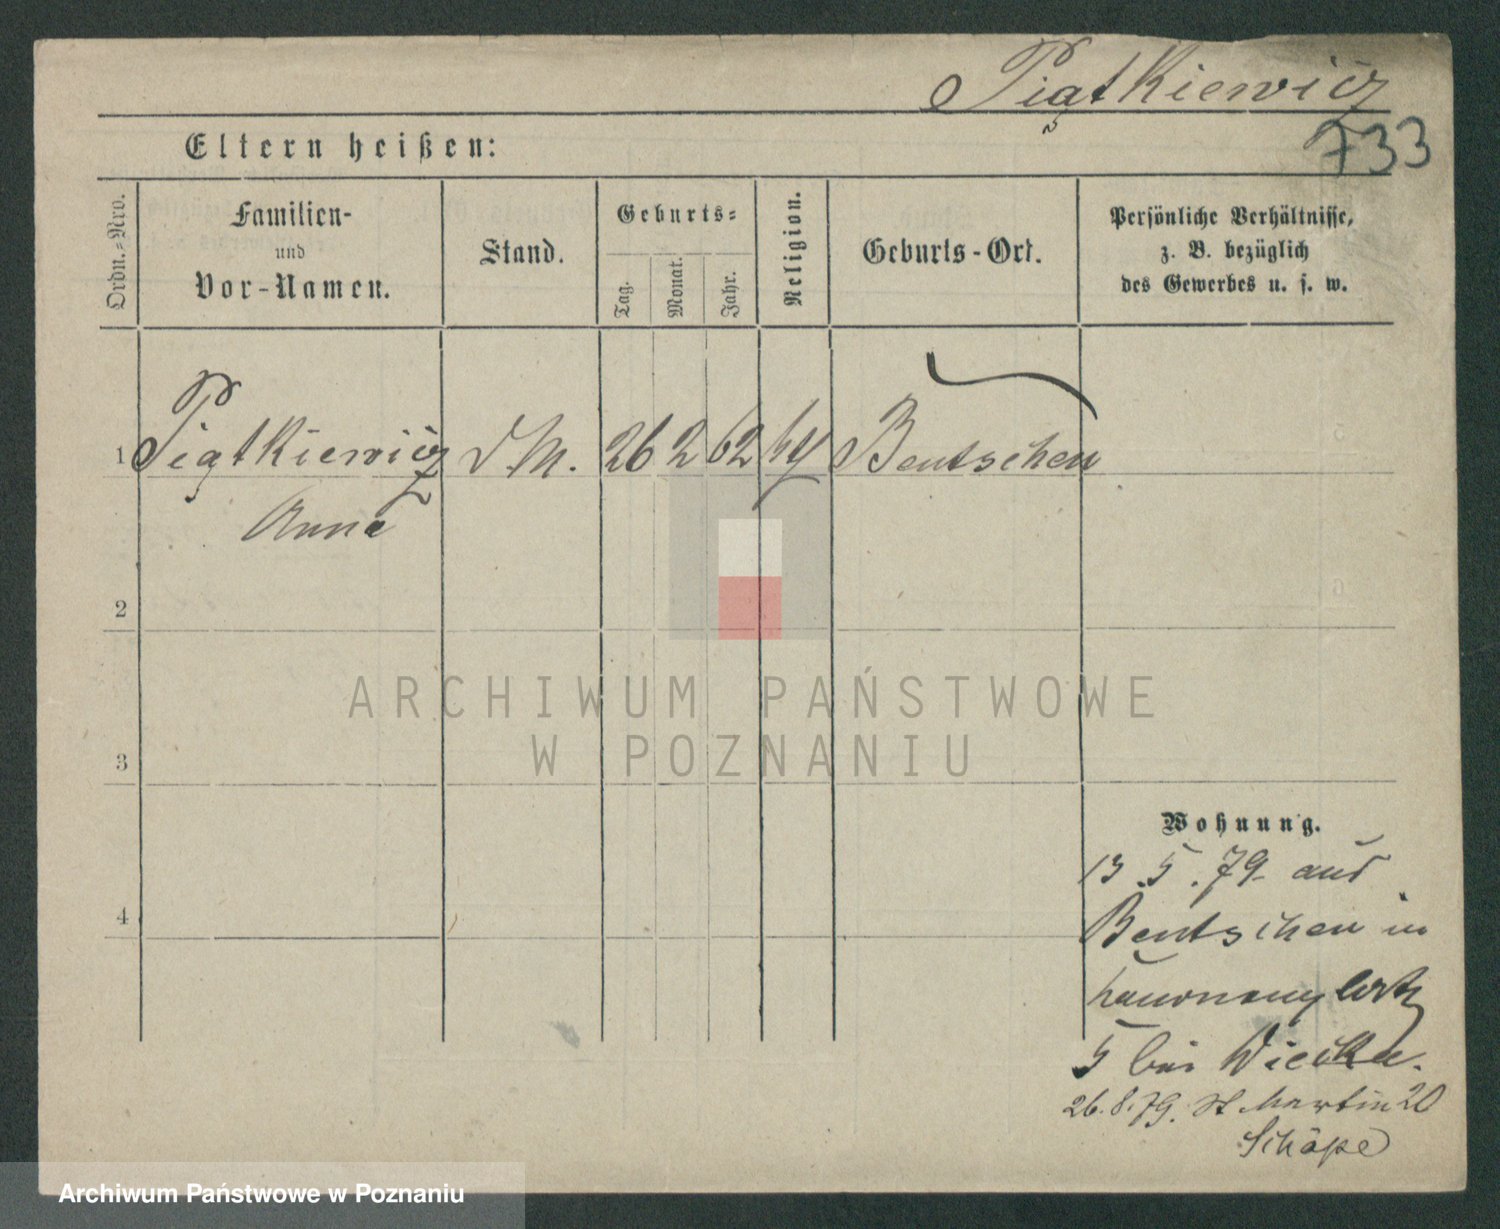 Piątkiewicz
733
Eltern heißen:
Ordn.-Nro.
Familien-
und
Vor-Namen.
Stand.
Geburts-
Tag.
Monat.
Jahr.
Religion.
Geburts-Ort.
Persönliche Verhältnisse,
z. B. bezüglich
des Gewerbes u. s. w.
1 Piątkiewicz d. M. 26 2 62 Bentschen
Anna
2
3
4
ARCHIWUM PAŃSTWOWE
W POZNANIU
Wohnung.
13. 5. 79 aus
Bentschen in
5 bei
26. 8. 79. St Martin 20
Schöpe
Archiwum Państwowe w Poznaniu